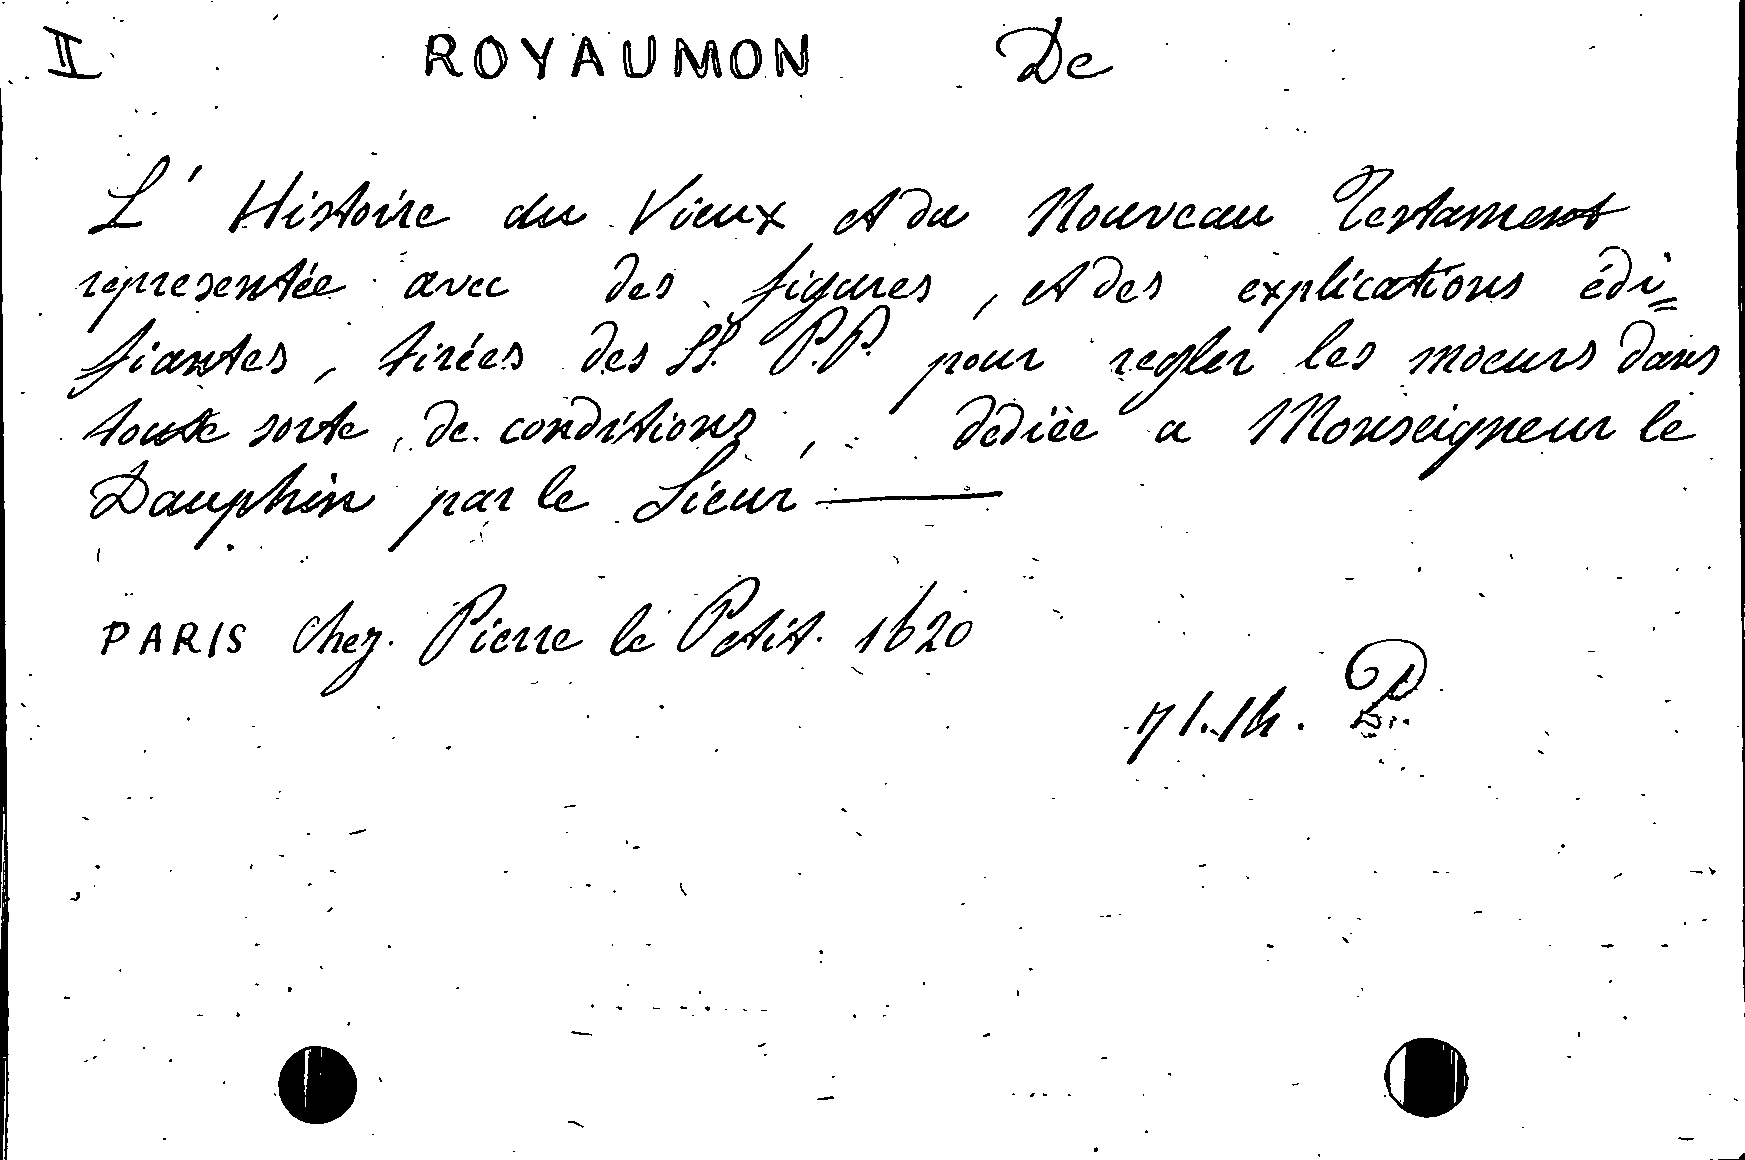 II ROYAUMON De
L' Histoire du Vieux et du Nouveau Testament
representée avec des figures, et des explications édi=
fiantes, tirées des SS. P.P. pour regler les moeurs dans
toute sorte de conditions, dediëe a Monseigneur le
Dauphin par le Sieur ———
PARIS chez Pierre le Petit. 1620